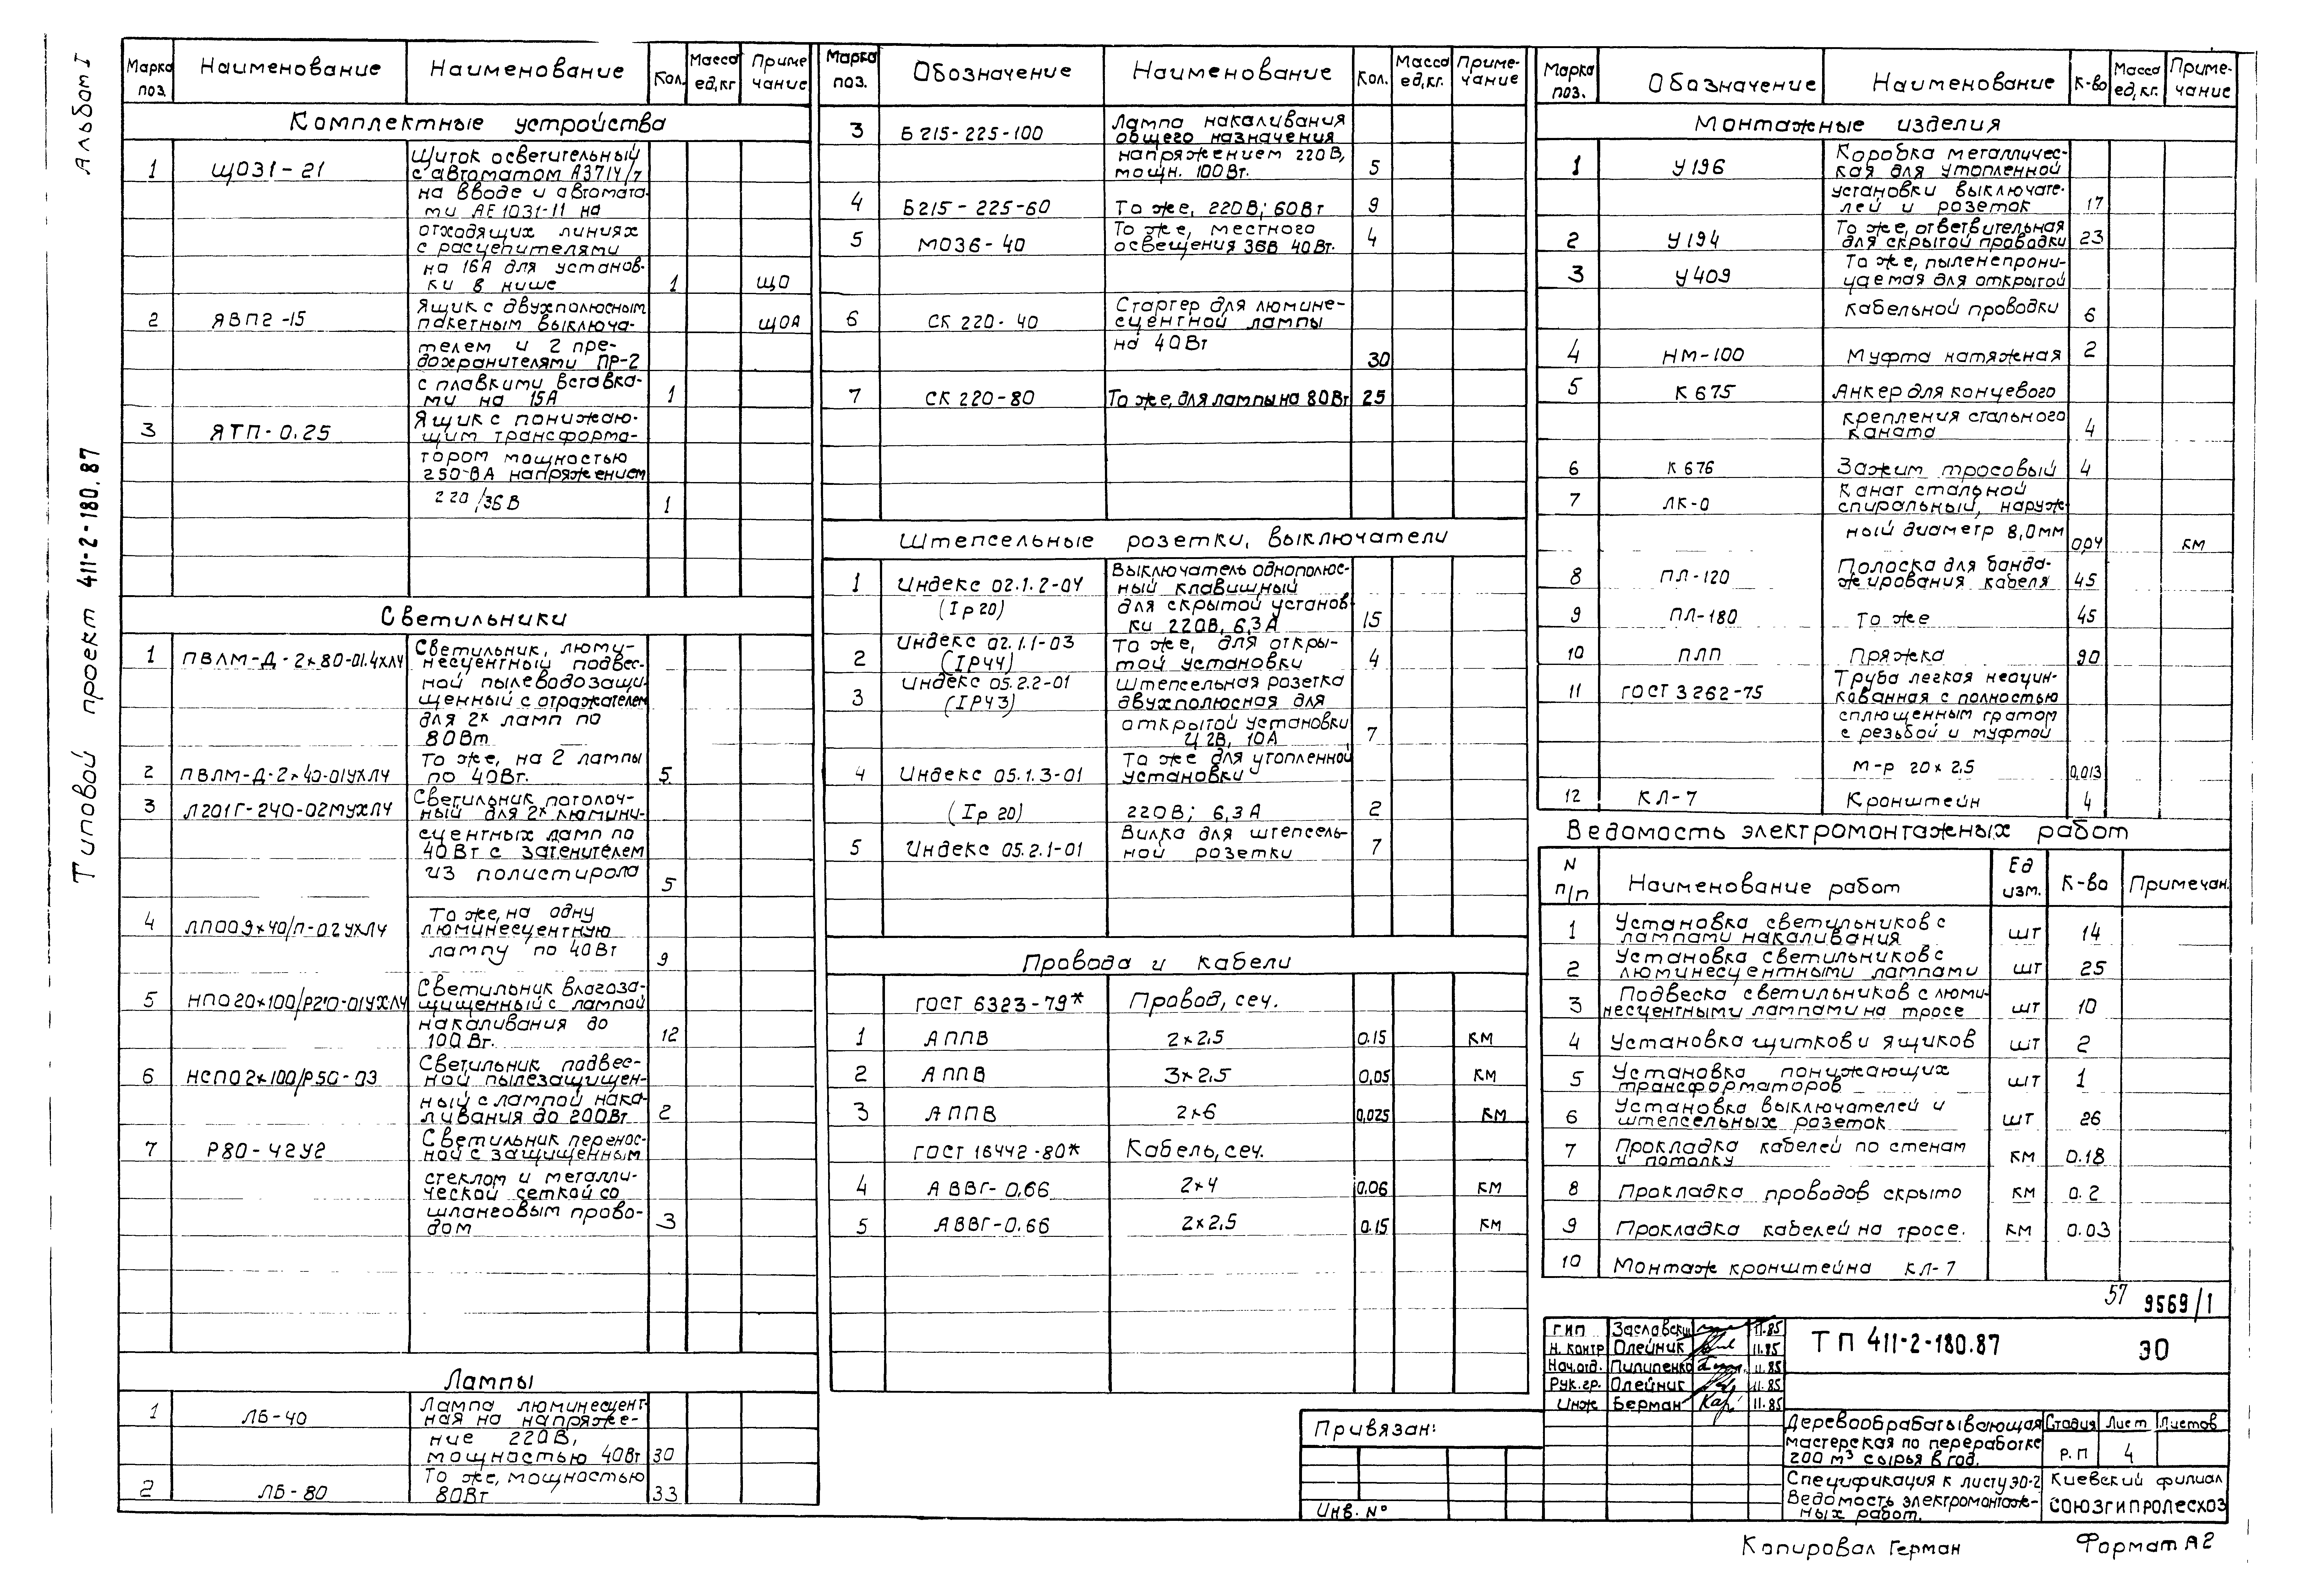 Альбом I
Типовой проект 411-2-180.87
Марка поз. Наименование Наименование Кол. Масса ед,кг Примечание
Комплектные устройства
1 ЩО31-21 Щиток осветительный
с автоматом А3714/7
на вводе и автомата-
ми АЕ1031-11 на
отходящих линиях
с расцепителями
на 16А для установ-
ки в нише 1 ЩО
2 ЯВП2-15 Ящик с двухполюсным
пакетным выключа- ЩОА
телем и 2 пре-
дохранителями ПР-2
с плавкими вставка-
ми на 15А 1
3 ЯТП-0.25 Ящик с понижаю-
щим трансформа-
тором мощностью
250-ВА напряжением
220/36В 1
Светильники
1 ПВЛМ-Д-2×80-01.4ХЛ4 Светильник, люми-
несцентный подвес-
ной пылеводозащи-
щенный с отражателем
для 2х ламп по
80Вт
2 ПВЛМ-Д-2×40-01УХЛ4 То же, на 2 лампы
по 40Вт. 5
3 Л201Г-240-02МУХЛ4 Светильник потолоч-
ный для 2х люмини-
сцентных ламп по
40Вт с затенителем
из полистирола 5
4 ЛПО09×40/П-02УХЛ4 То же, на одну
люминесцентную
лампу по 40Вт 9
5 НПО20×100/Р2'0-01УХЛ4 Светильник влагоза-
щищенный с лампой
накаливания до
100Вт. 12
6 НСП02×100/Р50-03 Светильник подвес-
ной пылезащищен-
ный с лампой нака-
ливания до 200Вт 2
7 Р80-42У2 Светильник перенос-
ной с защищенным
стеклом и металли-
ческой сеткой со
шланговым прово-
дом 3
Лампы
1 ЛБ-40 Лампа люминесцент-
ная на напряже-
ние 220В,
мощностью 40Вт 30
2 ЛБ-80 То же, мощностью
80Вт 33
Марка поз. Обозначение Наименование Кол. Масса ед,кг. Примечание
3 Б215-225-100 Лампа накаливания
общего назначения
напряжением 220В,
мощн. 100Вт. 5
4 Б215-225-60 То же, 220В; 60Вт 9
5 МО36-40 То же, местного
освещения 36В 40Вт. 4
6 СК 220-40 Стартер для люмине-
сцентной лампы
на 40Вт
30
7 СК 220-80 То же, для лампы на 80Вт 25
Штепсельные розетки, выключатели
1 Индекс 02.1.2-04 Выключатель однополюс-
ный клавишный
(Iр20) для скрытой установ-
ки 220В, 6,3А 15
2 Индекс 02.1.1-03 То же, для откры-
(IР44) той установки 4
3 Индекс 05.2.2-01 Штепсельная розетка
(IР43) двухполюсная для
открытой установки
42В, 10А 7
4 Индекс 05.1.3-01 То же для утопленной
установки
(Iр20) 220В; 6,3А 2
5 Индекс 05.2.1-01 Вилка для штепсель-
ной розетки 7
Провода и кабели
ГОСТ 6323-79* Провод, сеч.
1 АППВ 2×2,5 0.15 км
2 АППВ 3×2,5 0,05 км
3 АППВ 2×6 0,025 км
ГОСТ 16442-80* Кабель, сеч.
4 АВВГ-0,66 2×4 0.06 км
5 АВВГ-0.66 2×2,5 0.15 км
Марка поз. Обозначение Наименование К-во Масса ед,кг. Примечание
Монтажные изделия
1 У196 Коробка металличес-
кая для утопленной
установки выключате-
лей и розеток 17
2 У194 То же, ответвительная
для скрытой проводки 23
3 У409 То же, пыленепрони-
цаемая для открытой
кабельной проводки 6
4 НМ-100 Муфта натяжная 2
5 К675 Анкер для концевого
крепления стального
каната 4
6 К676 Зажим тросовый 4
7 ЛК-0 Канат стальной
спиральный, наруж-
ный диаметр 8,0мм 0,04 км
8 ПЛ-120 Полоска для банда-
жирования кабеля 45
9 ПЛ-180 То же 45
10 ПЛП Пряжка 90
11 ГОСТ 3262-75 Труба легкая неоцин-
кованная с полностью
сплющенным гратом
с резьбой и муфтой
М-р 20×2,5 0,013
12 КЛ-7 Кронштейн 4
Ведомость электромонтажных работ
N п/п Наименование работ Ед изм. К-во Примечан.
1 Установка светильников с
лампами накаливания шт 14
2 Установка светильников с
люминесцентными лампами шт 25
3 Подвеска светильников с люми-
несцентными лампами на тросе шт 10
4 Установка щитков и ящиков шт 2
5 Установка понижающих
трансформаторов шт 1
6 Установка выключателей и
штепсельных розеток шт 26
7 Прокладка кабелей по стенам
и потолку км 0.18
8 Прокладка проводов скрыто км 0.2
9 Прокладка кабелей на тросе. км 0.03
10 Монтаж кронштейна КЛ-7
57 9569/1
ГИП Заславский 11.85
Н. контр Олейник 11.85
Нач.отд. Пилипенко 11.85
Рук.гр. Олейник 11.85
Инж Берман 11.85
ТП 411-2-180.87 ЭО
Деревообрабатывающая
мастерская по переработке
200 м³ сырья в год.
Стадия Лист Листов
Р.П 4
Спецификация к листу ЭО-2
Ведомость электромонтаж-
ных работ.
Киевский филиал
СОЮЗГИПРОЛЕСХОЗ
Привязан:
Инв. №
Копировал Герман Формат А2